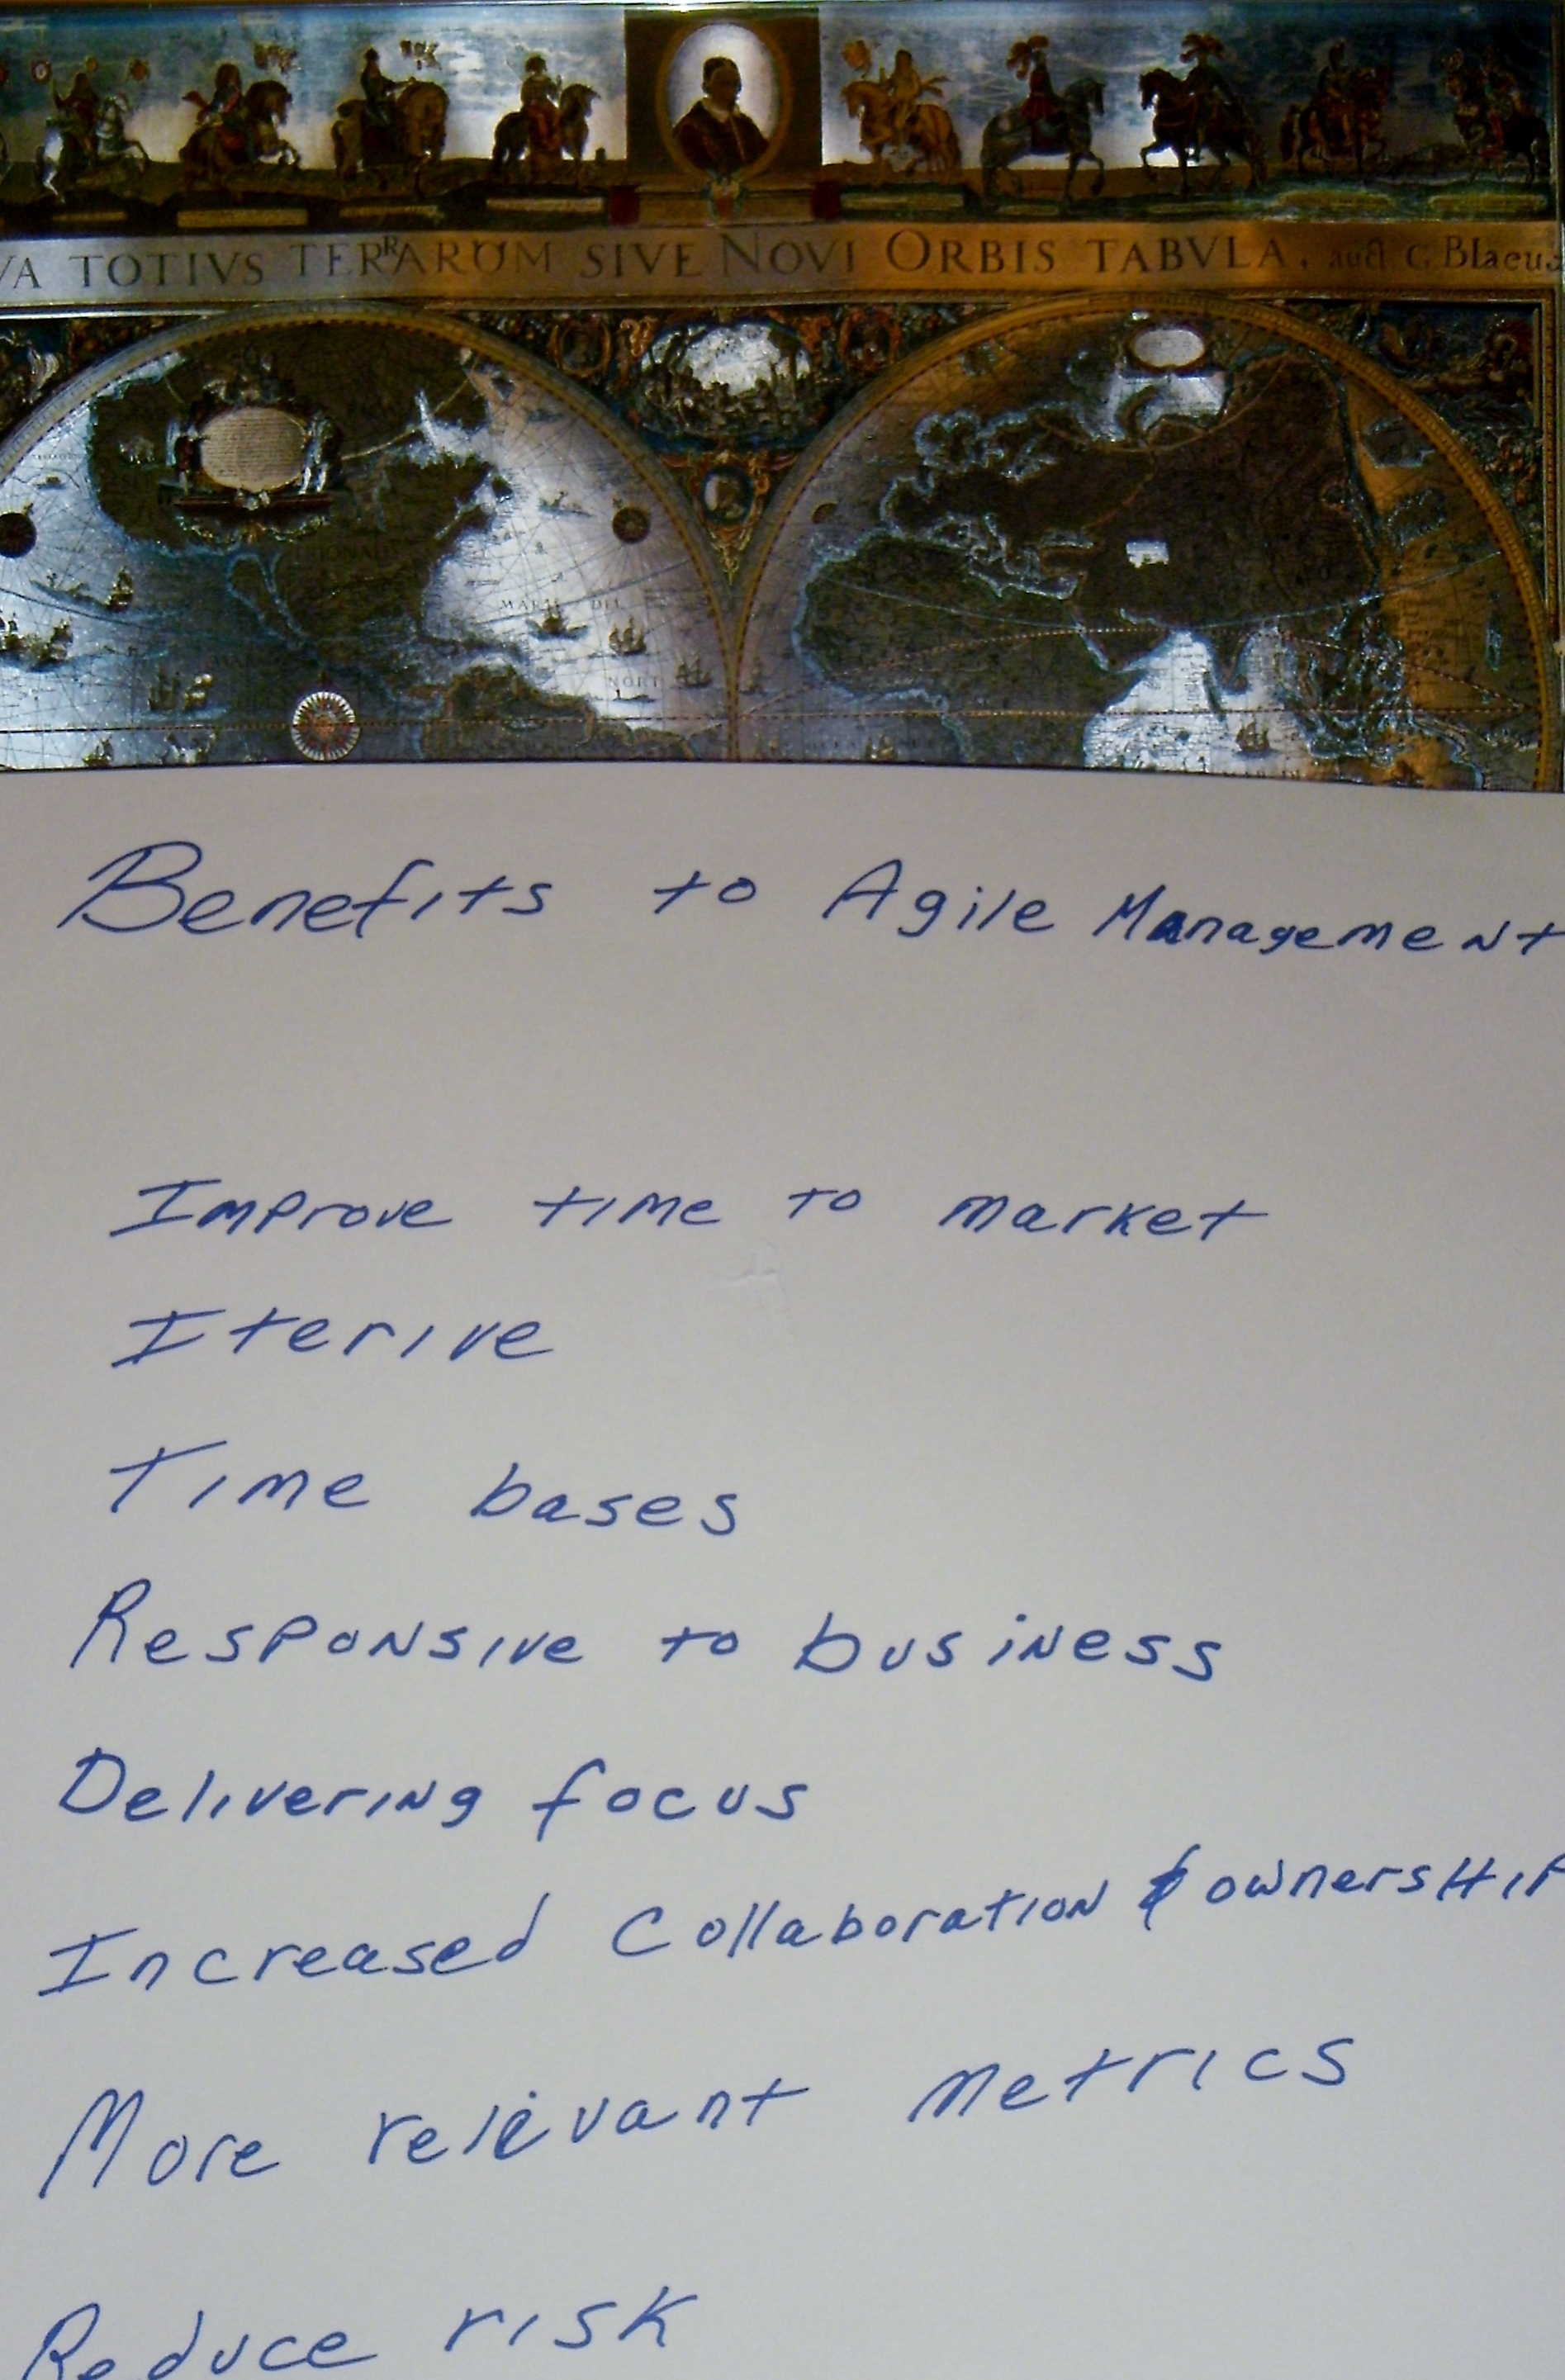 VA TOTIVS TERRARUM SIVE NOVI ORBIS TABVLA, auct C. Blaeu
MARE DEL
NORT
Benefits to Agile Management
Improve time to market
Iterive
Time bases
Responsive to business
Delivering focus
Increased Collaboration & ownership
More relevant metrics
Reduce risk